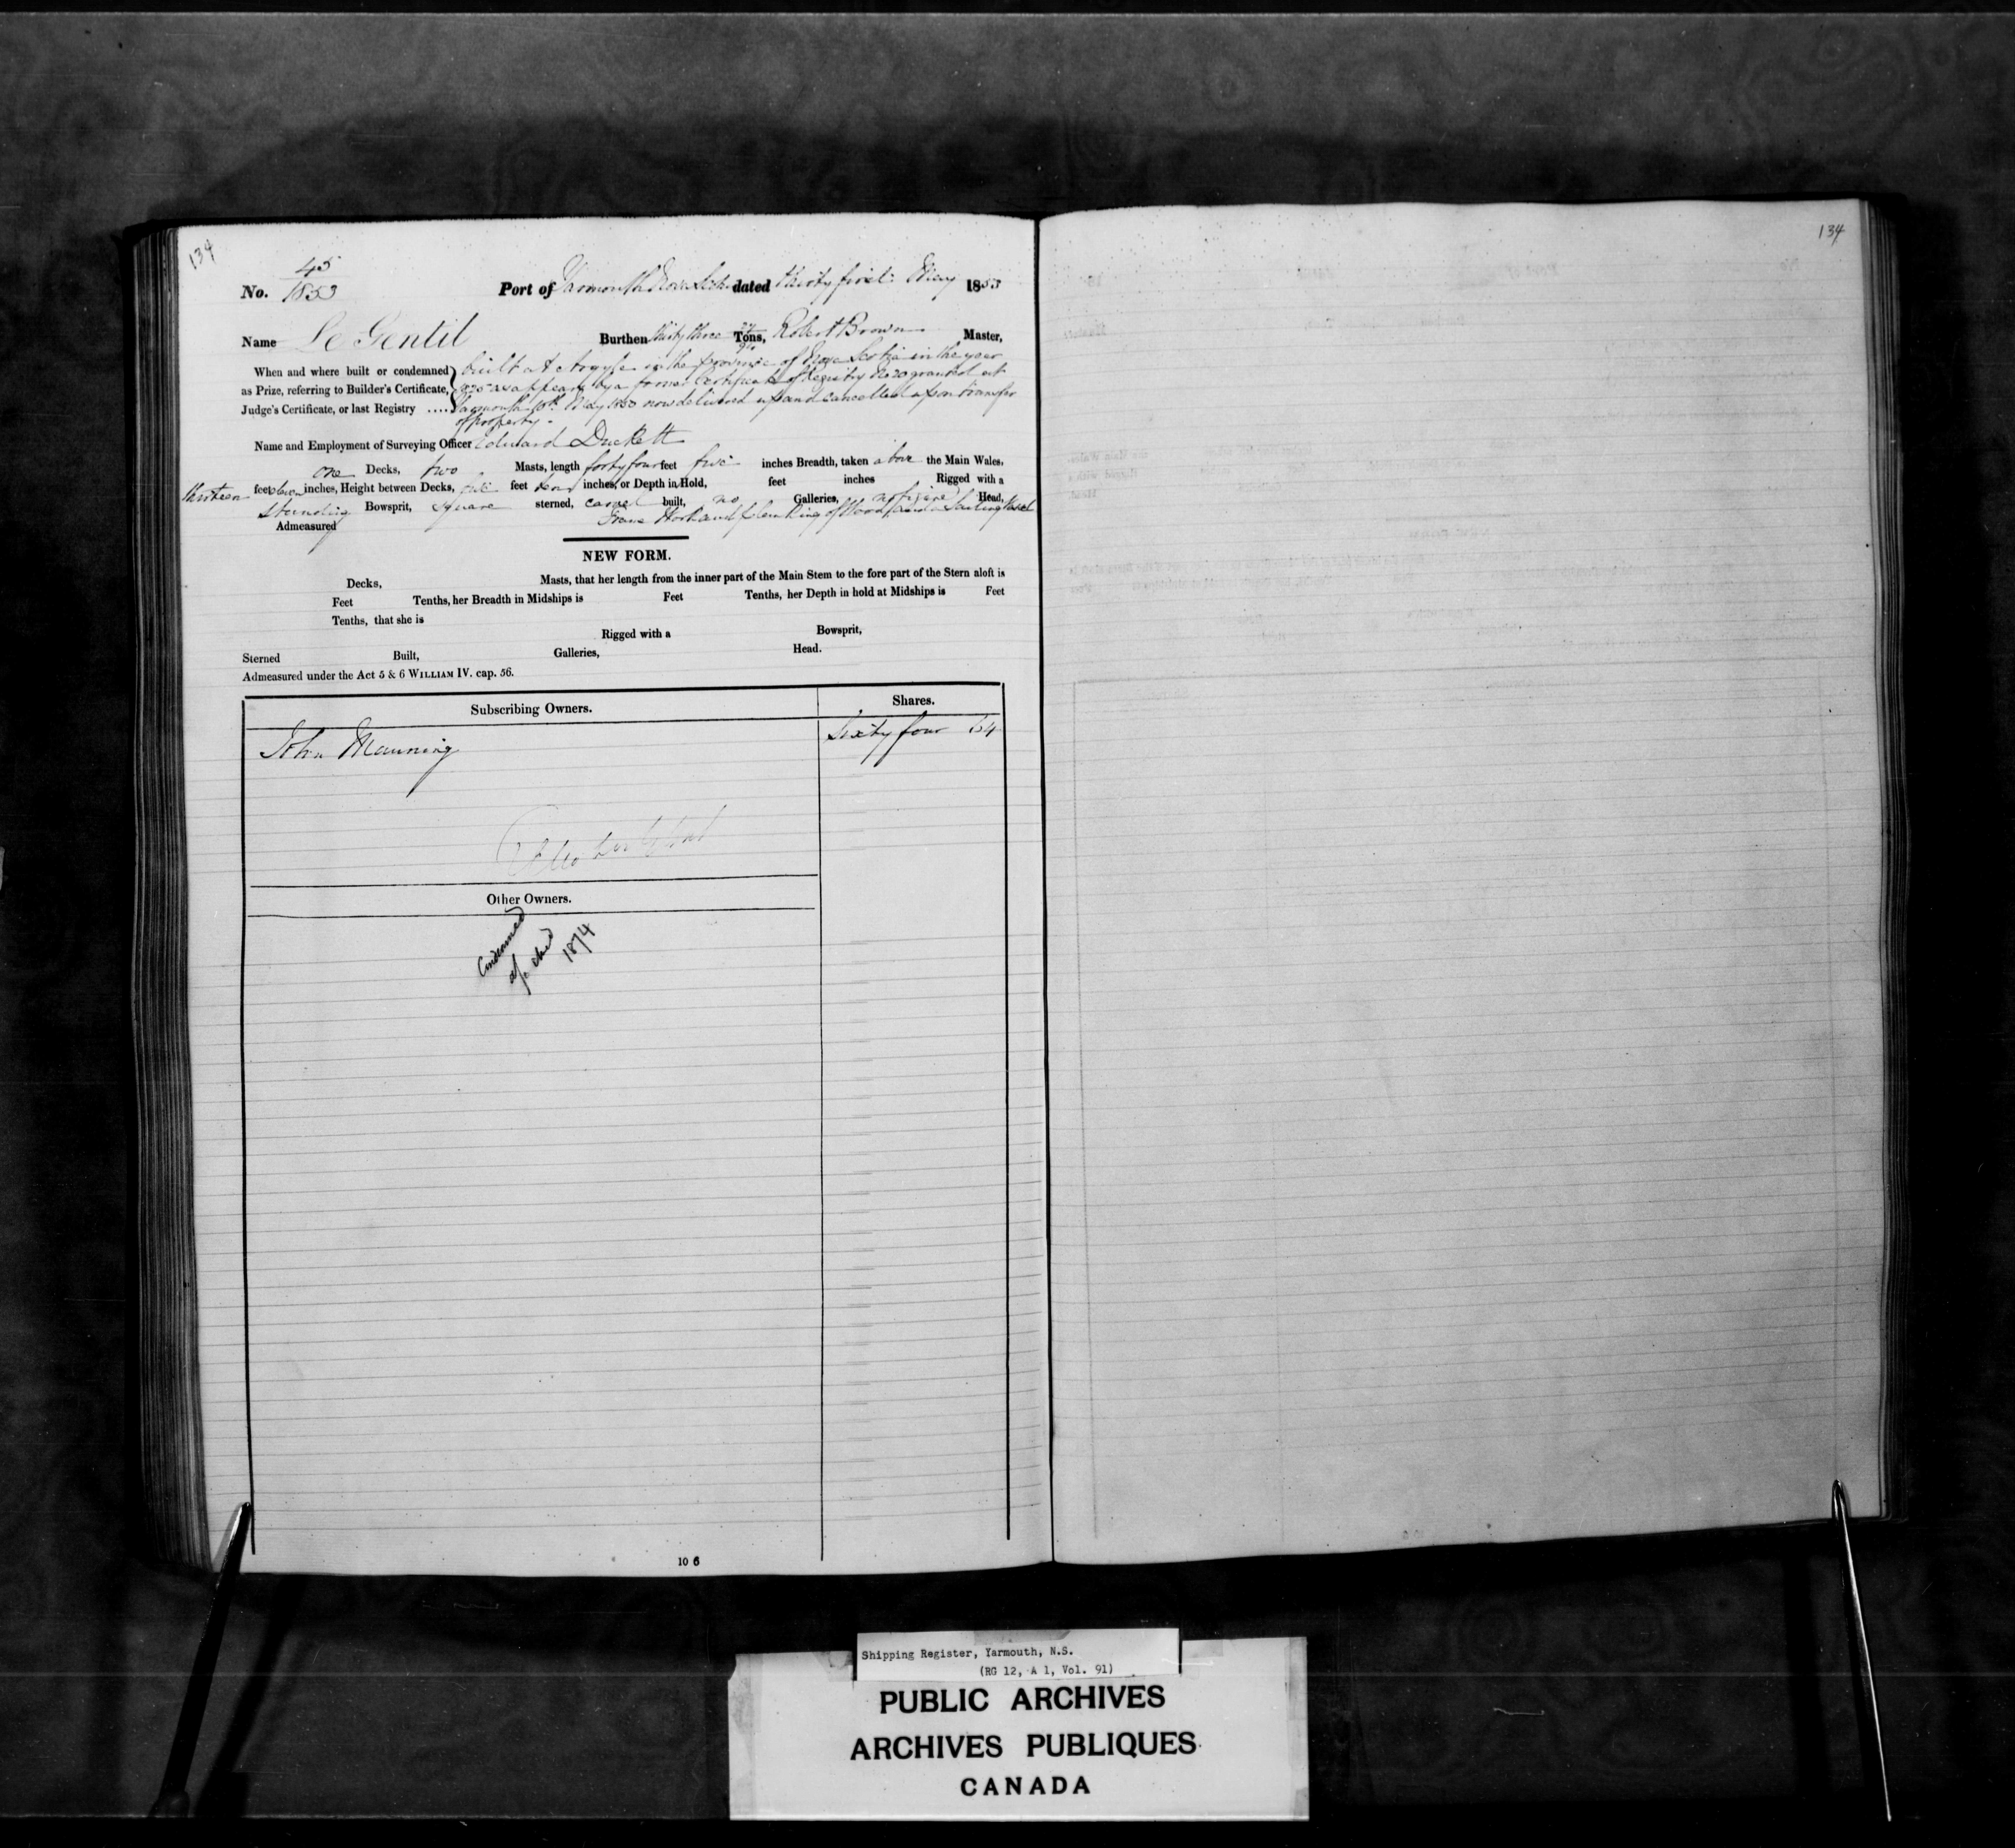 134
134
45
No. 1853 Port of Yarmouth Nova Scotia dated thirty first May 1853
Name Le Gentil Burthen thirty three Tons, Robert Brown Master,
When and where built or condemned built at Argyle in the province of Nova Scotia in the year
as Prize, referring to Builder's Certificate, as appears by a former Certificate of Registry No 20 granted at
Judge's Certificate, or last Registry .... Yarmouth May 1850 now delivered up and cancelled upon transfer
of property.
Name and Employment of Surveying Officer Edward Duckett
one Decks, two Masts, length forty four feet five inches Breadth, taken above the Main Wales,
thirteen feet eleven inches, Height between Decks, five feet ten inches, or Depth in Hold, feet inches Rigged with a
standing Bowsprit, square sterned, carvel built, no Galleries, no figure Head,
Admeasured Frame Work and planking of Wood, and a Sailing Vessel
NEW FORM.
Decks, Masts, that her length from the inner part of the Main Stem to the fore part of the Stern aloft is
Feet Tenths, her Breadth in Midships is Feet Tenths, her Depth in hold at Midships is Feet
Tenths, that she is
Rigged with a Bowsprit,
Sterned Built, Galleries, Head.
Admeasured under the Act 5 & 6 WILLIAM IV. cap. 56.
Subscribing Owners. Shares.
John Manning Sixty four 64
Other Owners.
Condemned
1874
10 6
Shipping Register, Yarmouth, N.S.
(RG 12, A 1, Vol. 91)
PUBLIC ARCHIVES
ARCHIVES PUBLIQUES
CANADA